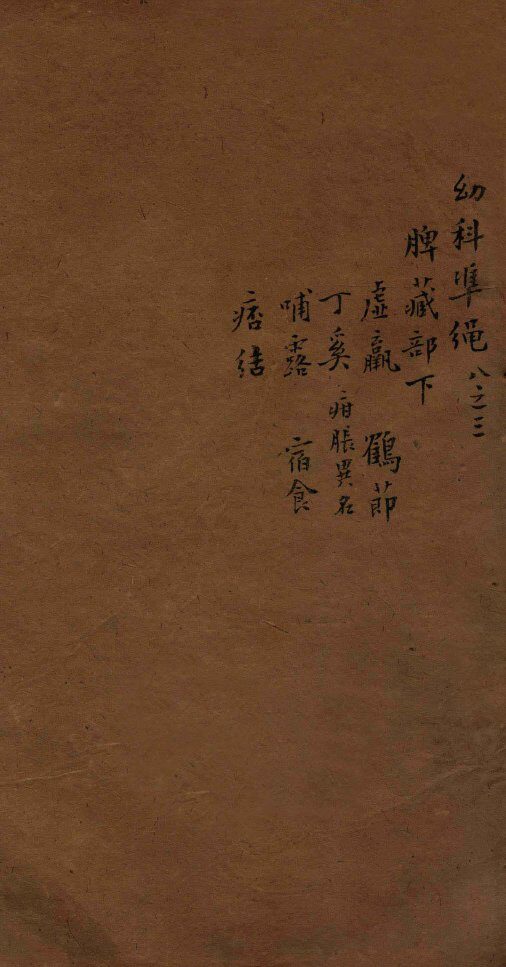 幼科準繩 八之三
脾藏部下
虛羸 鶴節
丁奚 疳脹異名
哺露 宿食
痞結